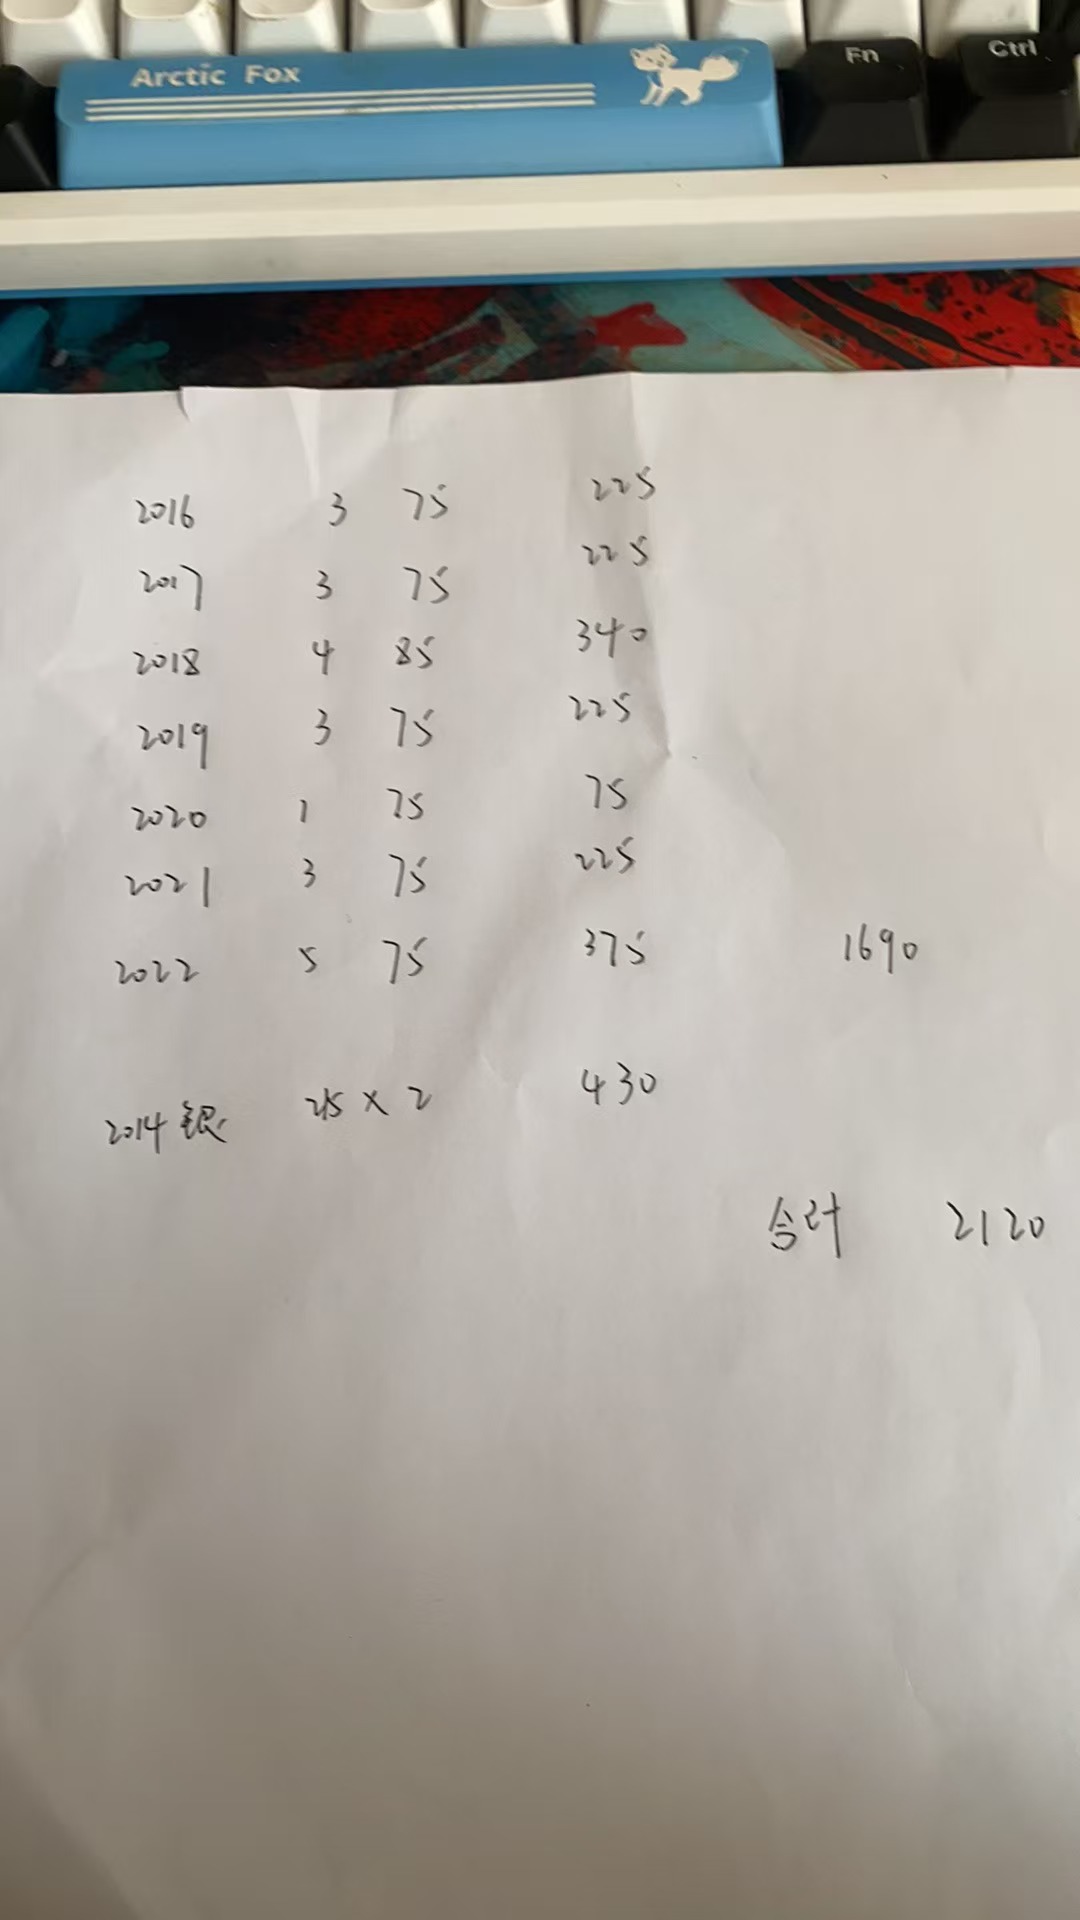 Arctic Fox
Fn
Ctrl
2016 3 75 225
2017 3 75 225
2018 4 85 340
2019 3 75 225
2020 1 75 75
2021 3 75 225
2022 5 75 375 1690
2014银 215 × 2 430
合计 2120